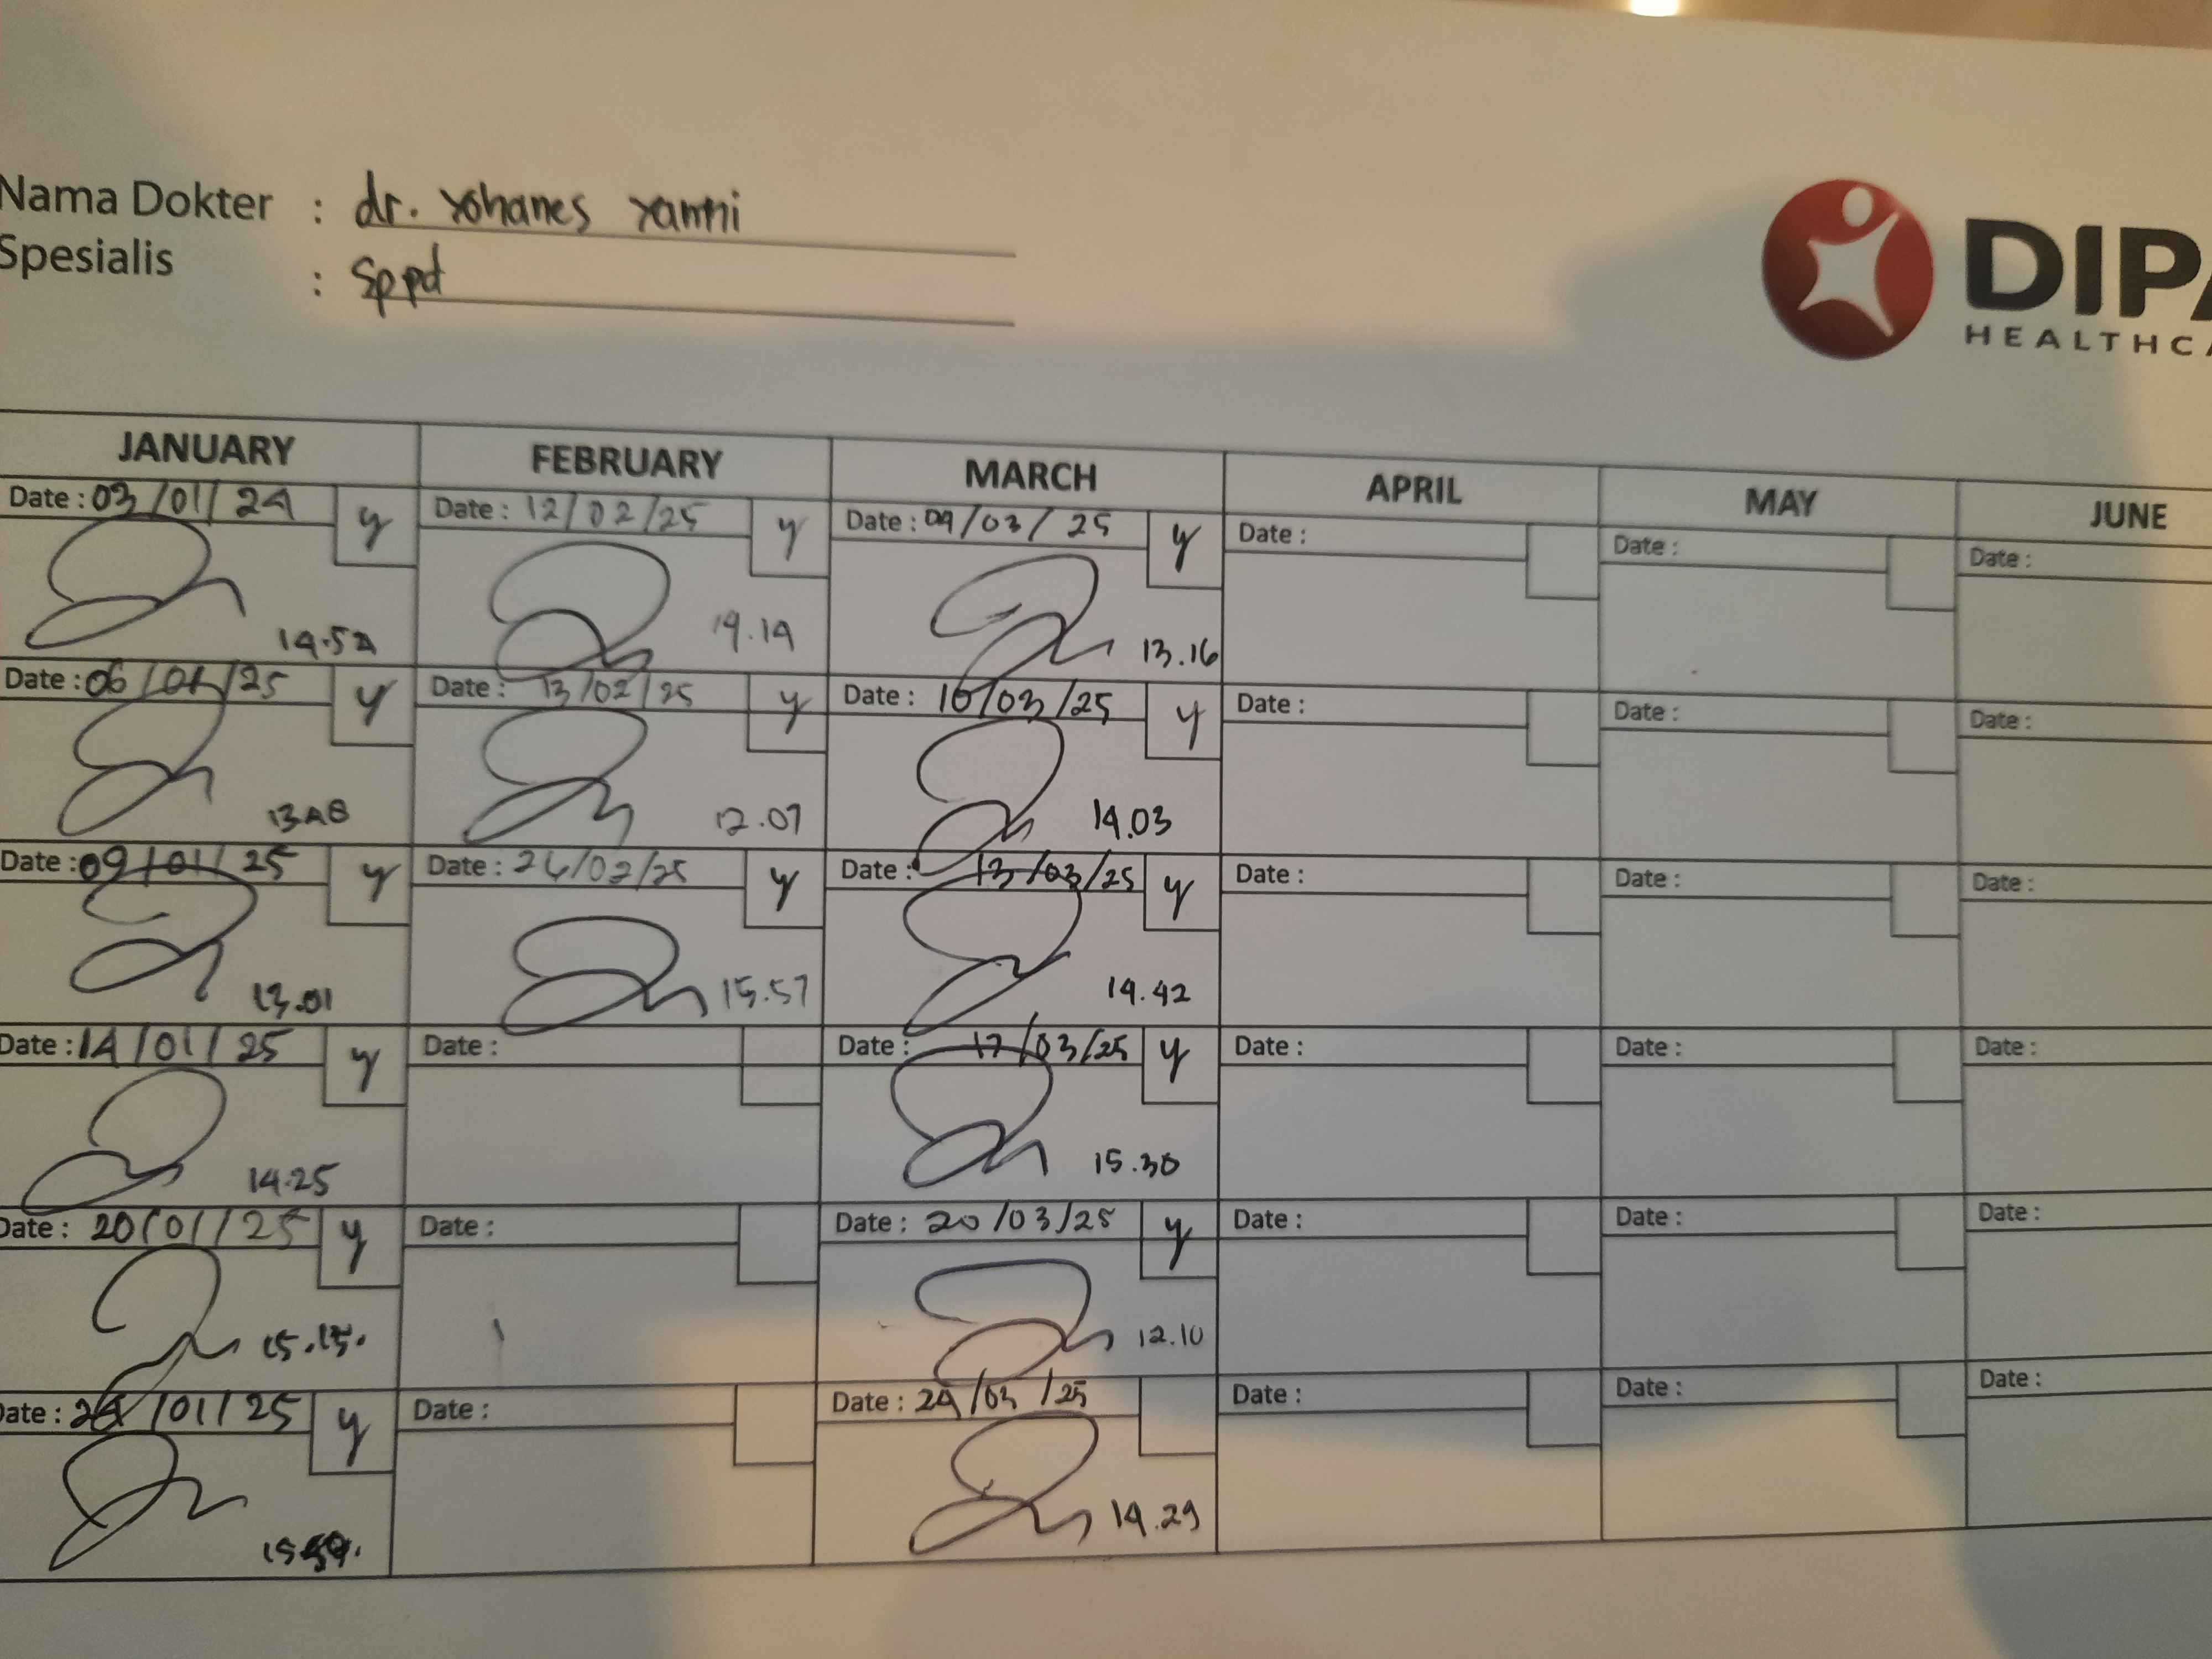 Nama Dokter : dr. Yohanes Yanni
Spesialis : Sppd
DIPA
HEALTHCA
JANUARY FEBRUARY MARCH APRIL MAY JUNE
Date : 03/01/24 y Date : 12/02/25 y Date : 04/03/25 y Date : Date : Date :
14.54 14.14 13.16
Date : 06/01/25 y Date : 13/02/25 y Date : 10/03/25 y Date : Date : Date :
13.48 12.07 14.03
Date : 09/01/25 y Date : 26/02/25 y Date : 13/03/25 y Date : Date : Date :
13.01 15.57 14.42
Date : 14/01/25 y Date : Date : 17/03/25 y Date : Date : Date :
14.25 15.30
Date : 20/01/25 y Date : Date : 20/03/25 y Date : Date : Date :
15.15. 12.10
Date : 24/01/25 y Date : Date : 24/03/25 Date : Date : Date :
14.29